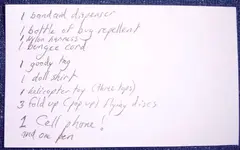 1 bandaid dispenser
1 bottle of bug repellent
1 nylon harness
1 bungee cord
1 goody bag
1 doll shirt
1 helicopter toy (three tops)
3 fold up (pop up) flying discs
1 Cell phone!
and one pen